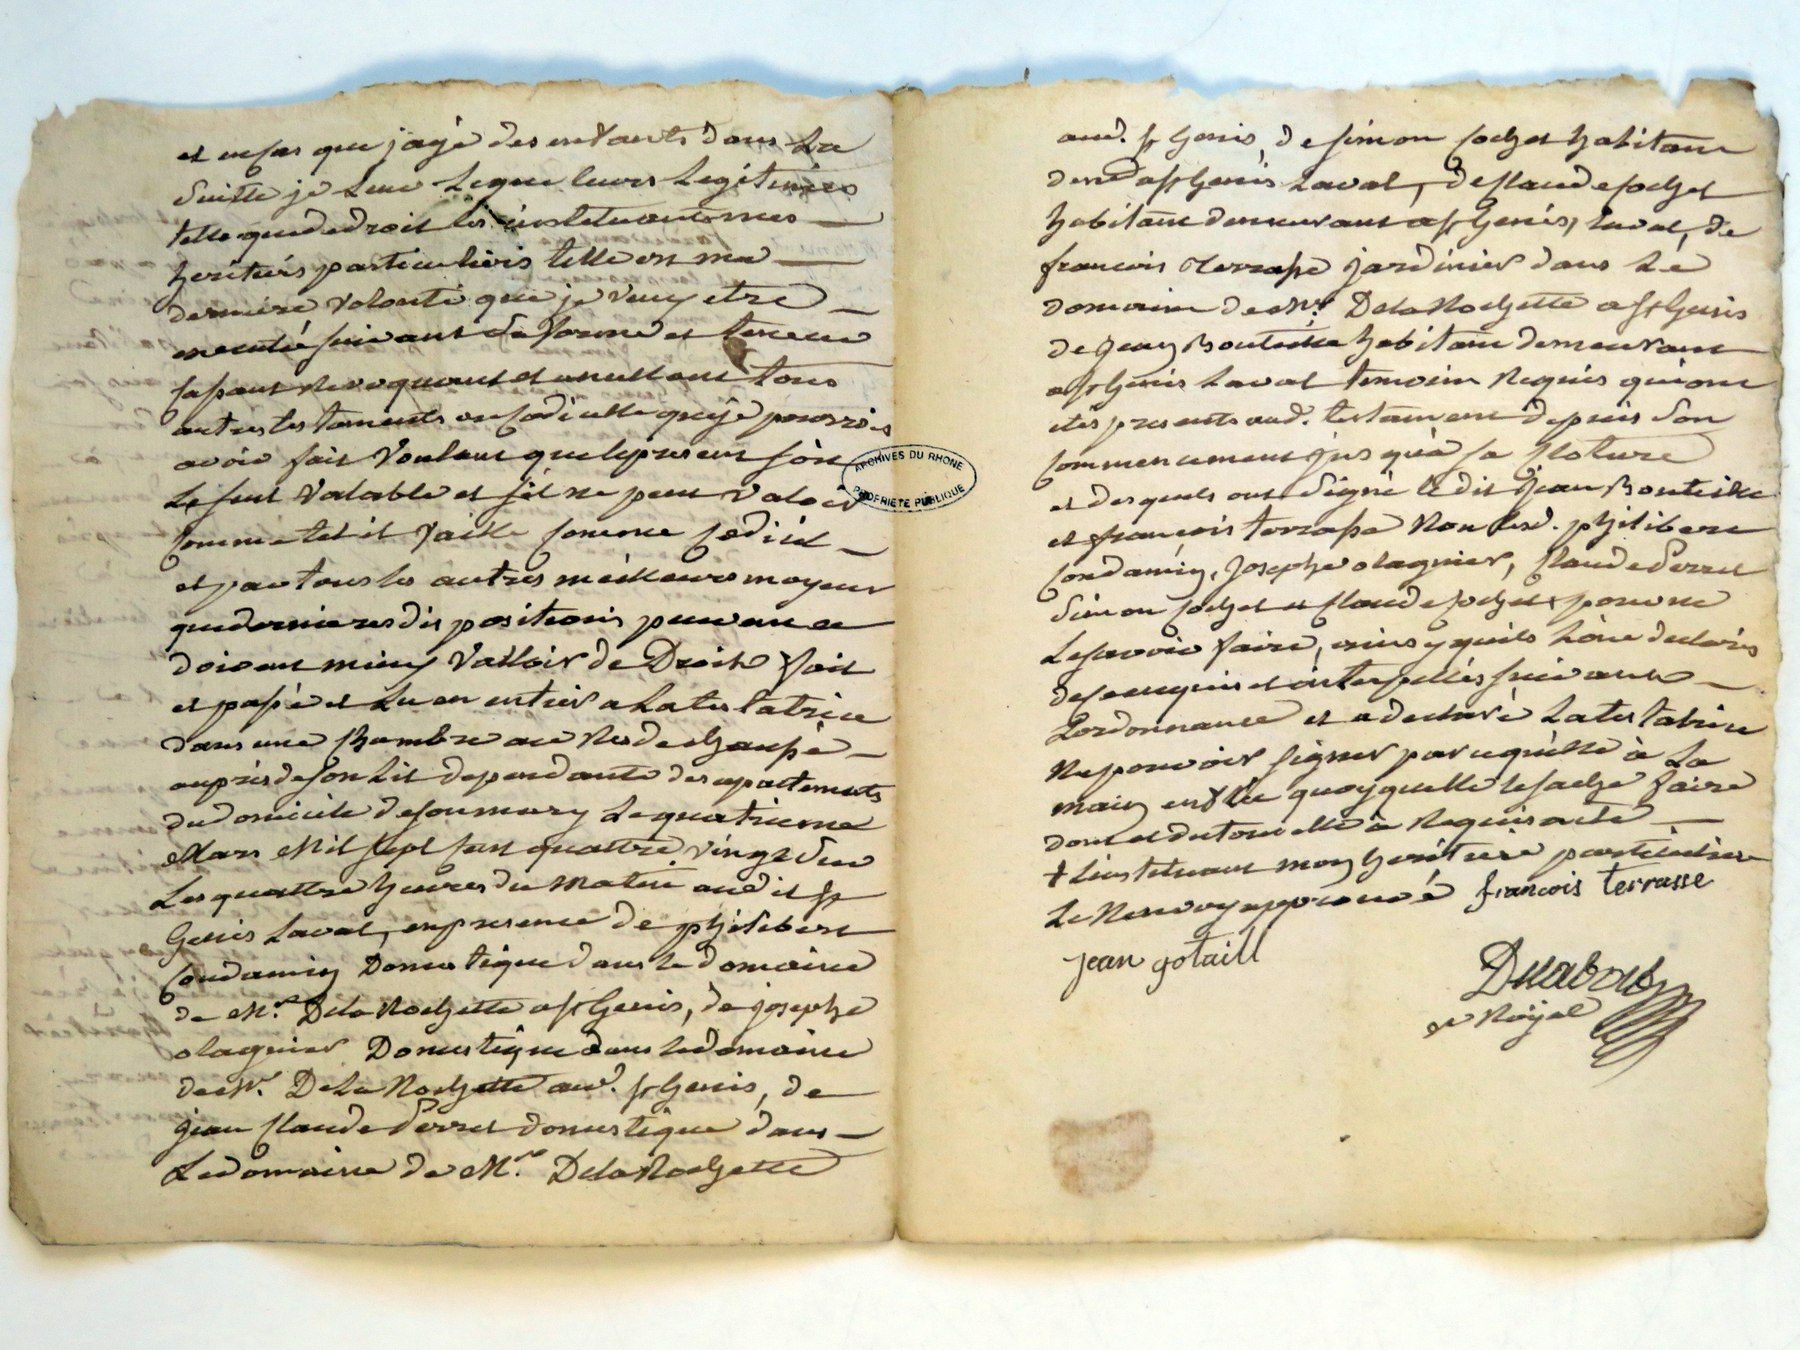 et en cas que j'ayé des enfants dans la
suitte je leur legue leurs legitimes
telle que de droit les instetuant mes
heritiers particuliers telle est ma
derniere volonté que je veux etre
executté suivant sa forme et teneur
cassant revoquant et anullant tous
autres testaments ou codicille que je pourrois
avoir fait voulant que le present soit
le seul valable et s'il ne peut valoir
comme tel il vaille comme codicil
et par tous les autres meilleurs moyens
que dernieres dispositions peuvent et
doivent mieux valloir de Droit fait
et passé et lu en entier a la testatrice
dans une chambre au rés de chaussé
auprès de son lit dependante des apartements
du domicile de son mary le quatrieme
Mars Mil sept cent quattre vingt deu
les quattre heures du matin aud it st
Genis Laval, en presence de philibert
Condamin Domestique dans le domaine
de Mr. Dela Rochette a st Genis, de josephe
olagnier Domestique dans le domaine
de Mr. De La Rochette aud. st Genis, de
jean Claude Perret domestique dans
le domaine de Mr. Dela Rochette
aud. st Genis, de simon Cochet habitant
dud st Genis Laval, de Claude Cochet
habitant demeurant a st Genis, Laval, de
francois Terrasse jardinier dans le
domaine de Mr. Dela Rochette a st Genis
de jean Bouteille habitant demeurant
a st Genis Laval temoins Requis qui ont
etés presents aud. testament depuis son
commencement jusqu'à sa Cloture
et desquels ont signé le dit jean Bouteille
et francois terrasse Non lesd. philibert
Condamin, Josephe olagnier, Claude Perret
Simon Cochet et Claude Cochet pour ne
le scavoir faire, ainsy quils l'ont declaré
de ce enquis et interpellés suivant
L'ordonnance et a declaré la testatrice
Ne pouvoir signer par ce qu'elle à la
main enflée quoyquelle le sache faire
dont et du tout elle à Requis acte
+ L'instetuant mon heritiere particuliere
le Renvoy approuvé francois terrasse
jean gotaill
Royal
ARCHIVES DU RHONE
PROPRIETE PUBLIQUE